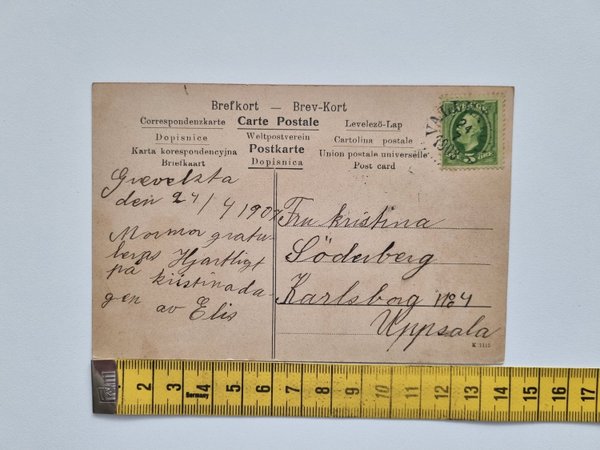 Brefkort — Brev-Kort
Correspondenzkarte Carte Postale Levelező-Lap
Dopisnice Weltpostverein Cartolina postale
Karta korespondencyjna Postkarte Union postale universelle
Briefkaart Dopisnica Post card
den 24/4 1907
Mormor gratu-
leras Hjartligt
på kristinada-
gen av Elis
Fru Kristina
Söderberg
Karlsborg No 4
Uppsala
K 2112
5 ÖRE
1 2 3 4 5 6 7 8 9 10 11 12 13 14 15 16 17
Germany